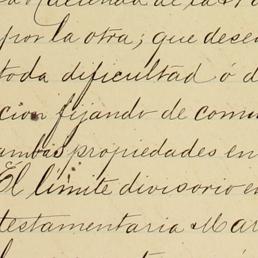 Hacienda de la
por la otra; que dese
toda dificultad ó d
cion fijando de comu
ambas propiedades en
El límite divisorio e
testamentaria Mar